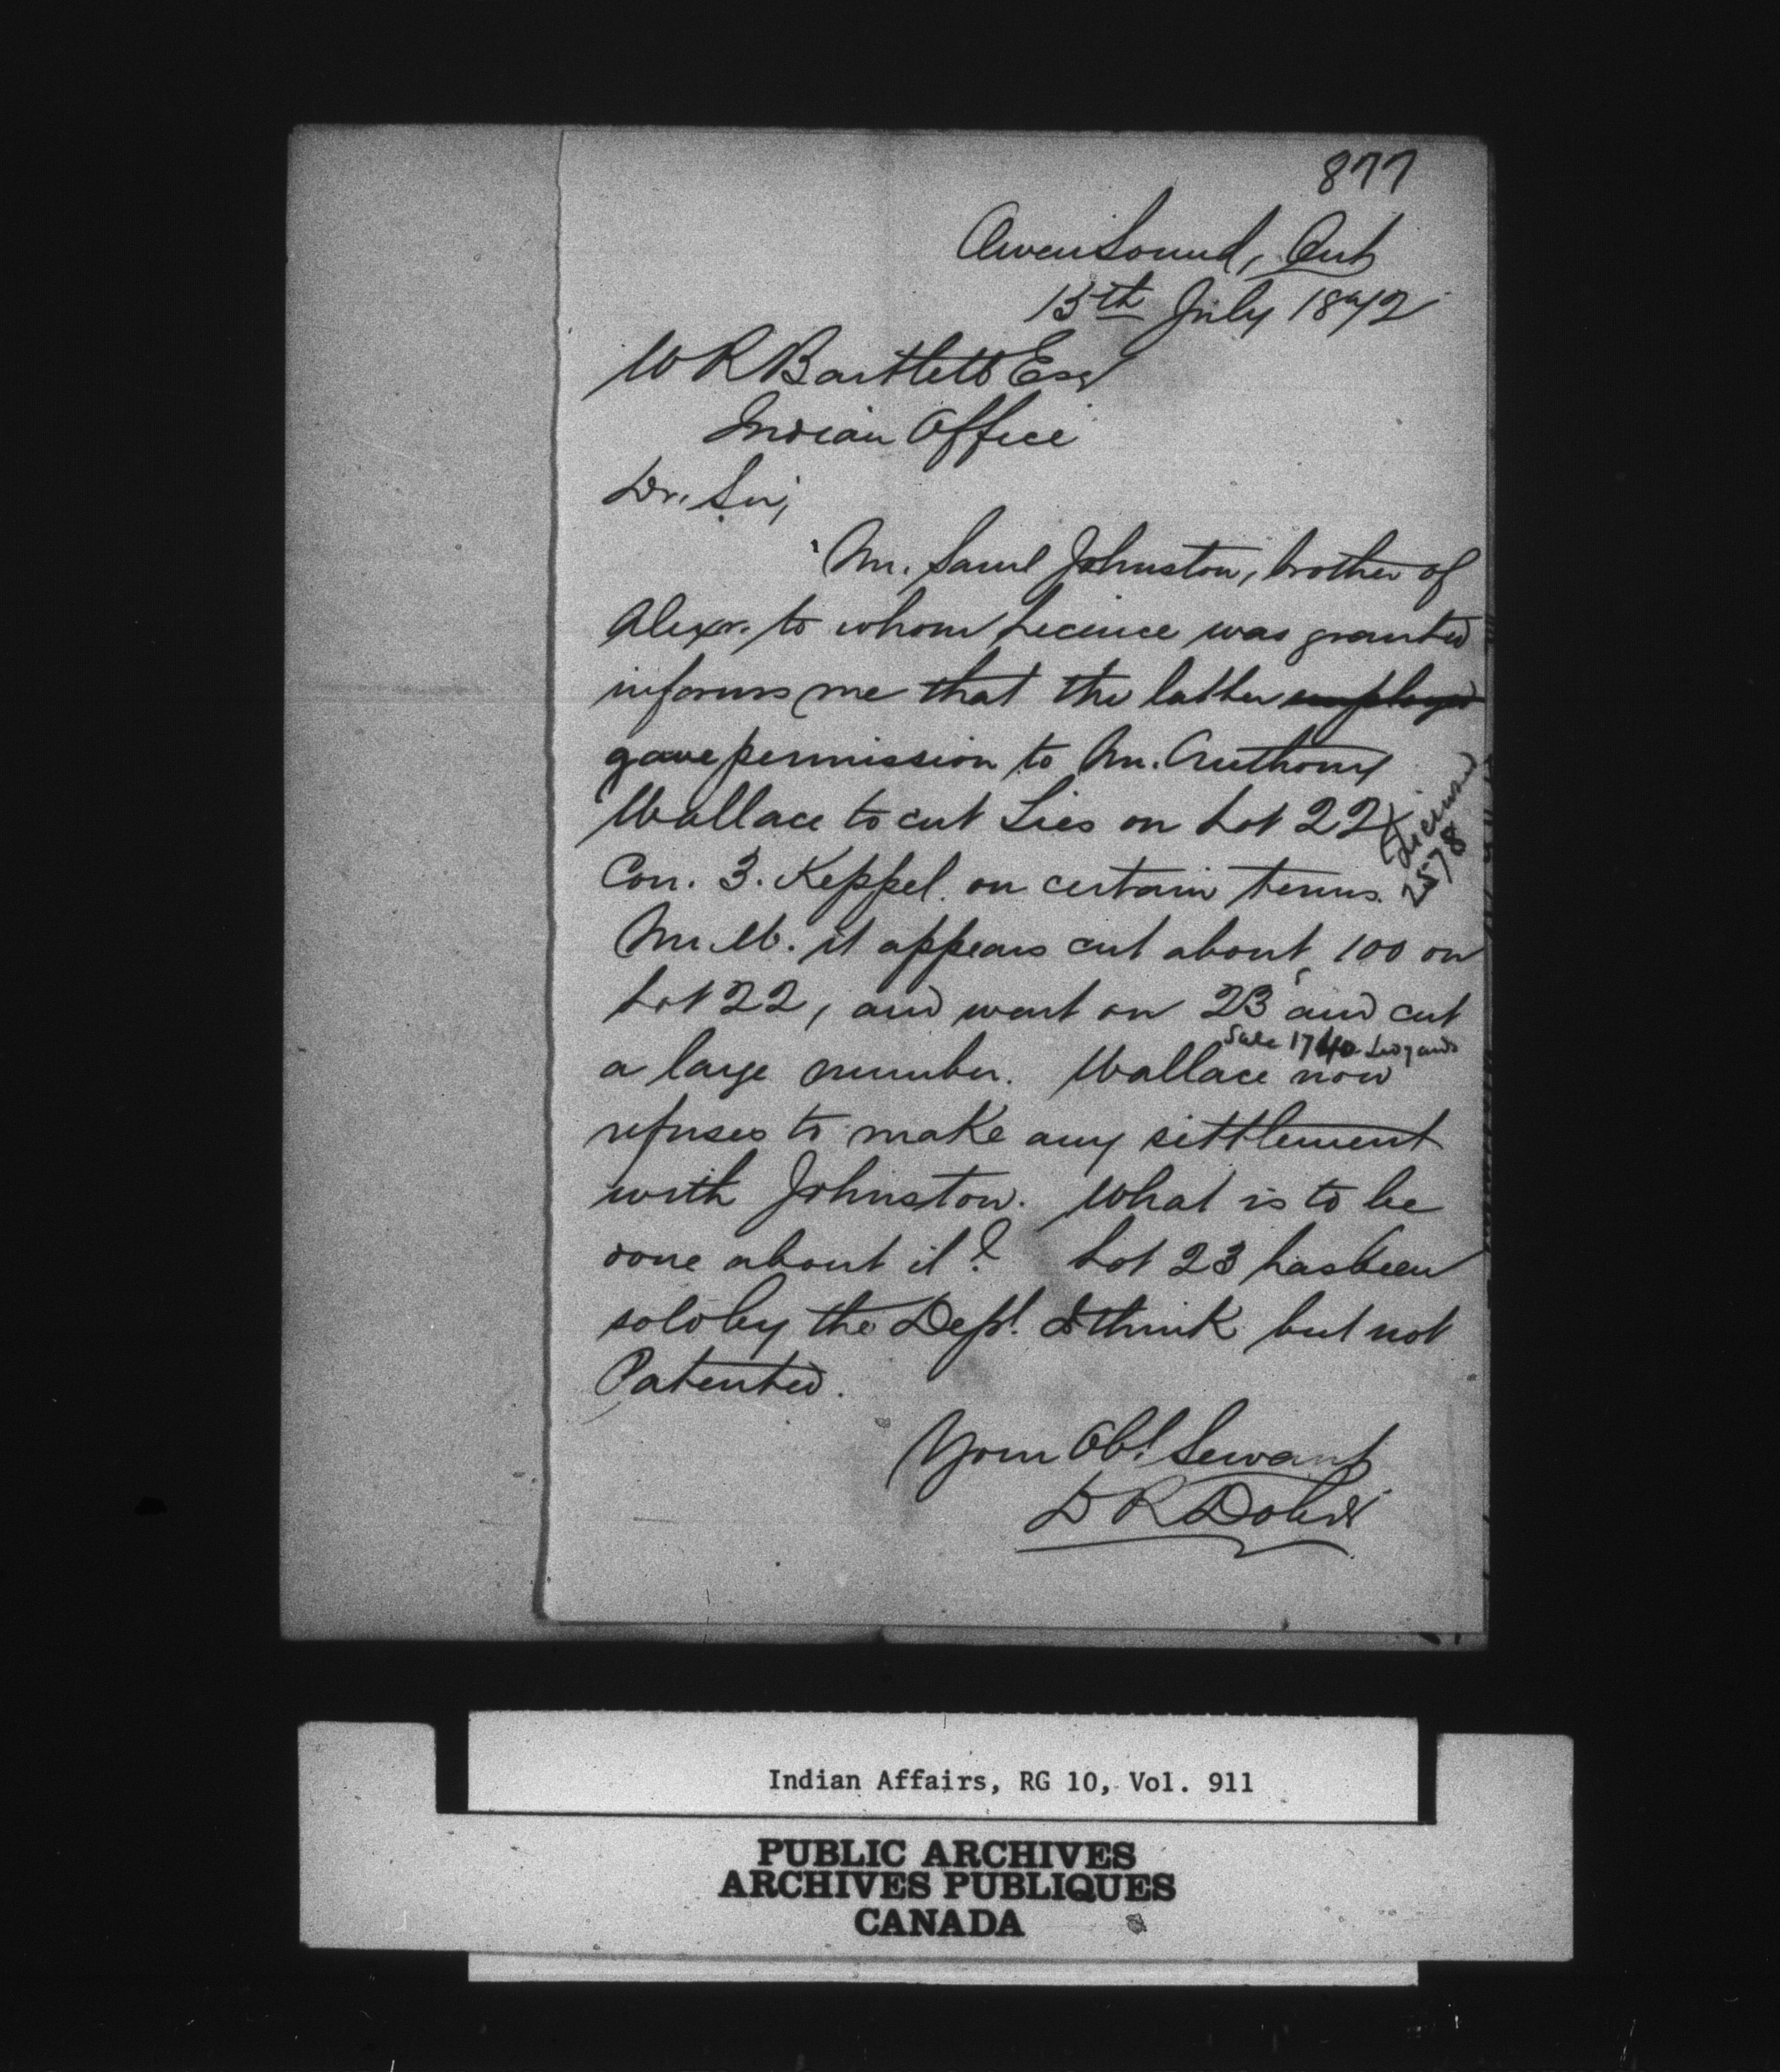 877
Owen Sound, Ont
15th July 1872
W R Bartlett Esq
Indian Office
Dr. Sir,
Mr. Saml Johnston, brother of
Alexr. to whom Licence was granted
informs me that the latter employed
gave permission to Mr. Anthony
Wallace to cut Ties on Lot 22 X
Con. 3. Keppel. on certain terms.
Licensed
2578
Mr. W. it appears cut about 100 on
Lot 22, and went on 23 and cut
Sale 1740
a large number. Wallace now
refuses to make any settlement
with Johnston. What is to be
done about it? Lot 23 has been
sold by the Dept. I think but not
Patented.
Your Obt Servant
Indian Affairs, RG 10, Vol. 911
PUBLIC ARCHIVES
ARCHIVES PUBLIQUES
CANADA